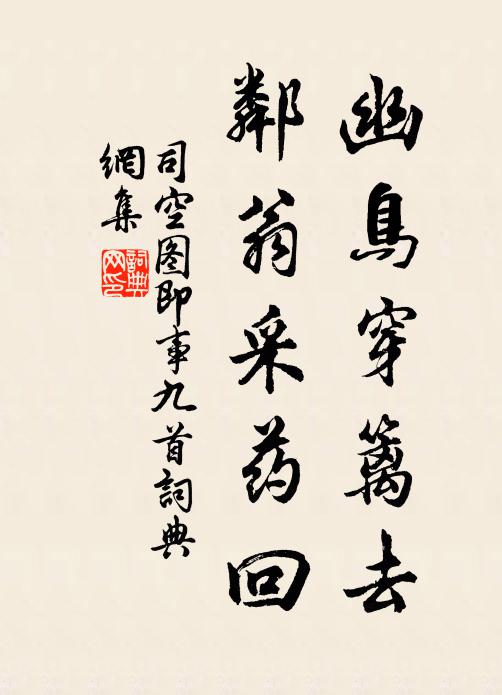 幽鳥穿籬去
鄰翁采药回
司空图即事九首詞典
網集
詞典网印